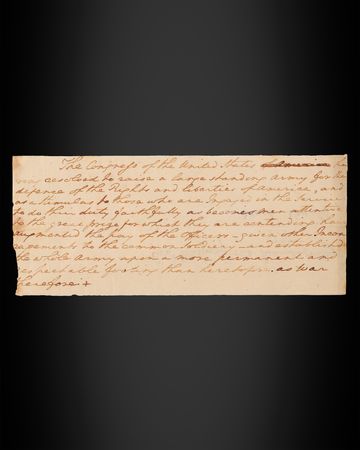 The Congress of the United States America ha
ving resolved to raise a large standing Army for the
defence of the Rights and liberties of America, and
as a stimulus to those who are Ingaged in the Service
to do their duty faithfully as becomes men attentive
to the great prize for which they are contending have
augmented the pay of the Officers — given other Incour
agements to the common Soldiery — and established
the whole Army upon a more permanent and
respectable footing than heretofore. as was
therefore +